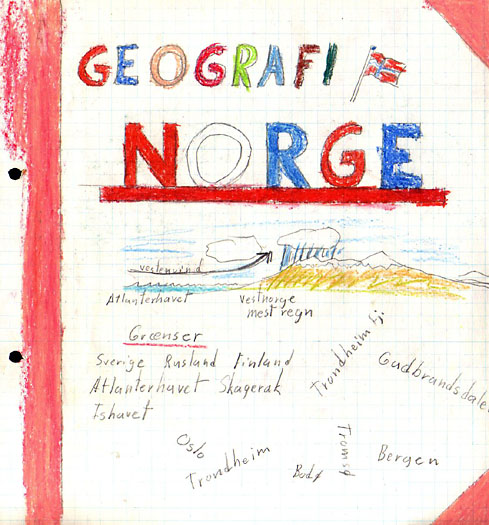 GEOGRAFI
NORGE
vestenvind
Atlanterhavet
Vestnorge
mest regn
Grænser
Sverige Rusland Finland
Atlanterhavet Skagerak
Ishavet
Trondheim fj.
Gudbrandsdale
Oslo
Trondheim
Bodø
Tromsø
Bergen